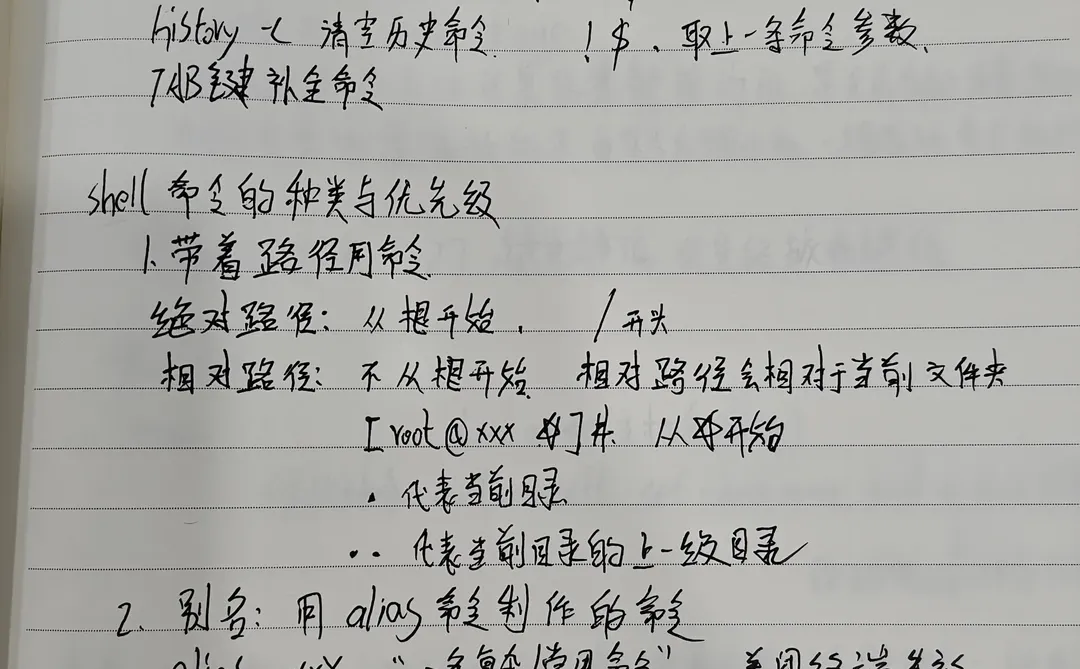 history -c 清空历史命令. !$、取上一条命令参数.
TAB键补全命令
shell 命令的种类与优先级
1.带着路径用命令
绝对路径: 从根开始. /开头
相对路径: 不从根开始. 相对路径会相对于当前文件夹
[root@xxx ☆]#. 从☆开始
. 代表当前目录
.. 代表当前目录的上一级目录
2. 别名: 用 alias 命令制作的命令